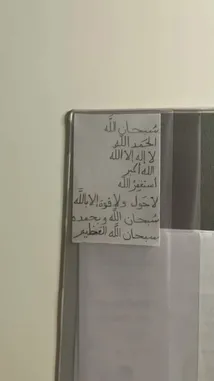 سُبحان اللّه
الحَمد الله
لا إله إلا الله
الله اكبر
أستغفر الله
لا حَول ولا قوة الا بالله
سُبحان الله وبحمده
سبحان الله العَظيم